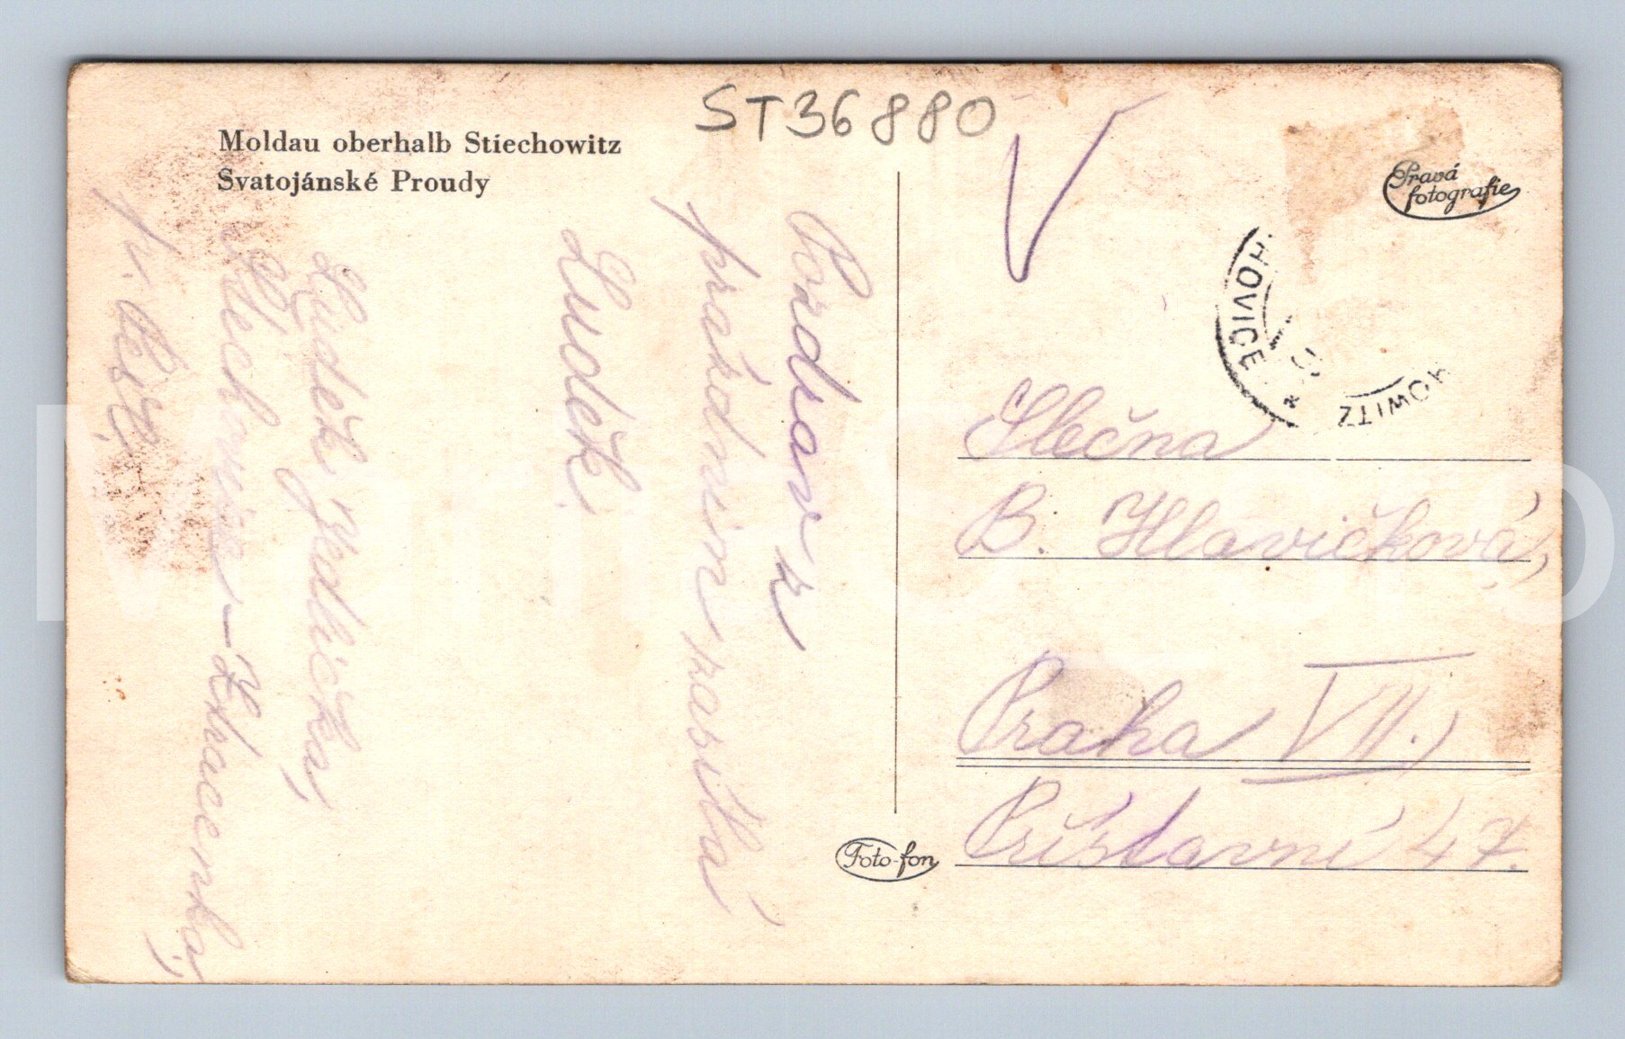 ST36880
Moldau oberhalb Stiechowitz
Svatojánské Proudy
V
Pravá
fotografie
HOVICE
HOWITZ
Pozdrav z
prázdnin zasílá
Luděk.
Luděk Jedlička,
Štěchovice - Ztracenka,
p. Dvůr
Slečna
B. Hlavičková,
Praha VII.)
Přístavní 47.
Foto-fon